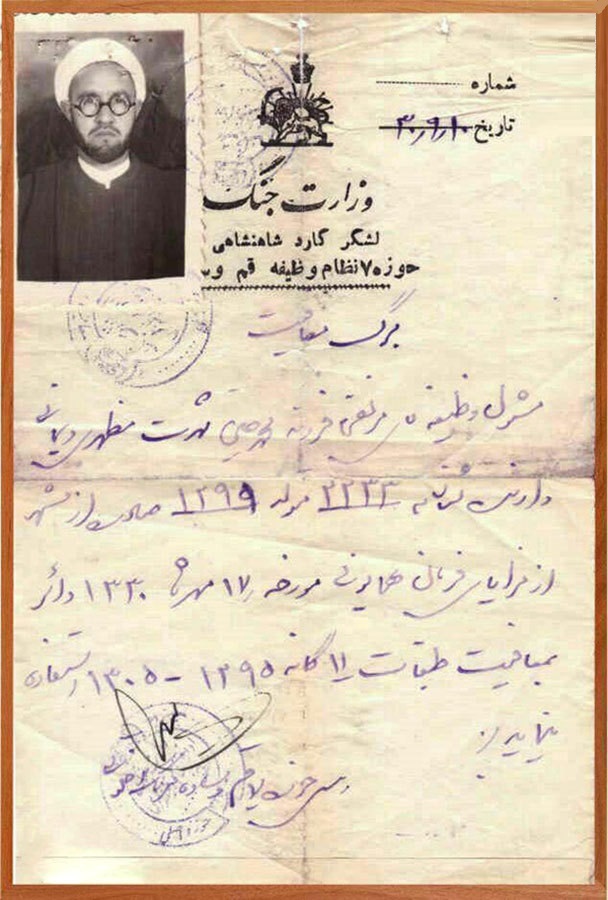 شماره
تاریخ ۳۰٫۹٫۱۰
وزارت جنگ
لشگر گارد شاهنشاهی
حوزه ۷ نظام وظیفه قم و
برگ معافیت
مشمول وظیفه مرتضی فرزند شهرت مطهری
دارنده شناسنامه ۳۲۳۳ مولد ۱۲۹۹ صادره از مشهد
از مزایای فرمان همایونی مورخه ۱۷ مهرماه ۱۳۳۰ دائر
بمعافیت طبقات ۱۱ گانه ۱۲۹۵ – ۱۳۰۵ استفاده
مینماید
رئیس حوزه قم